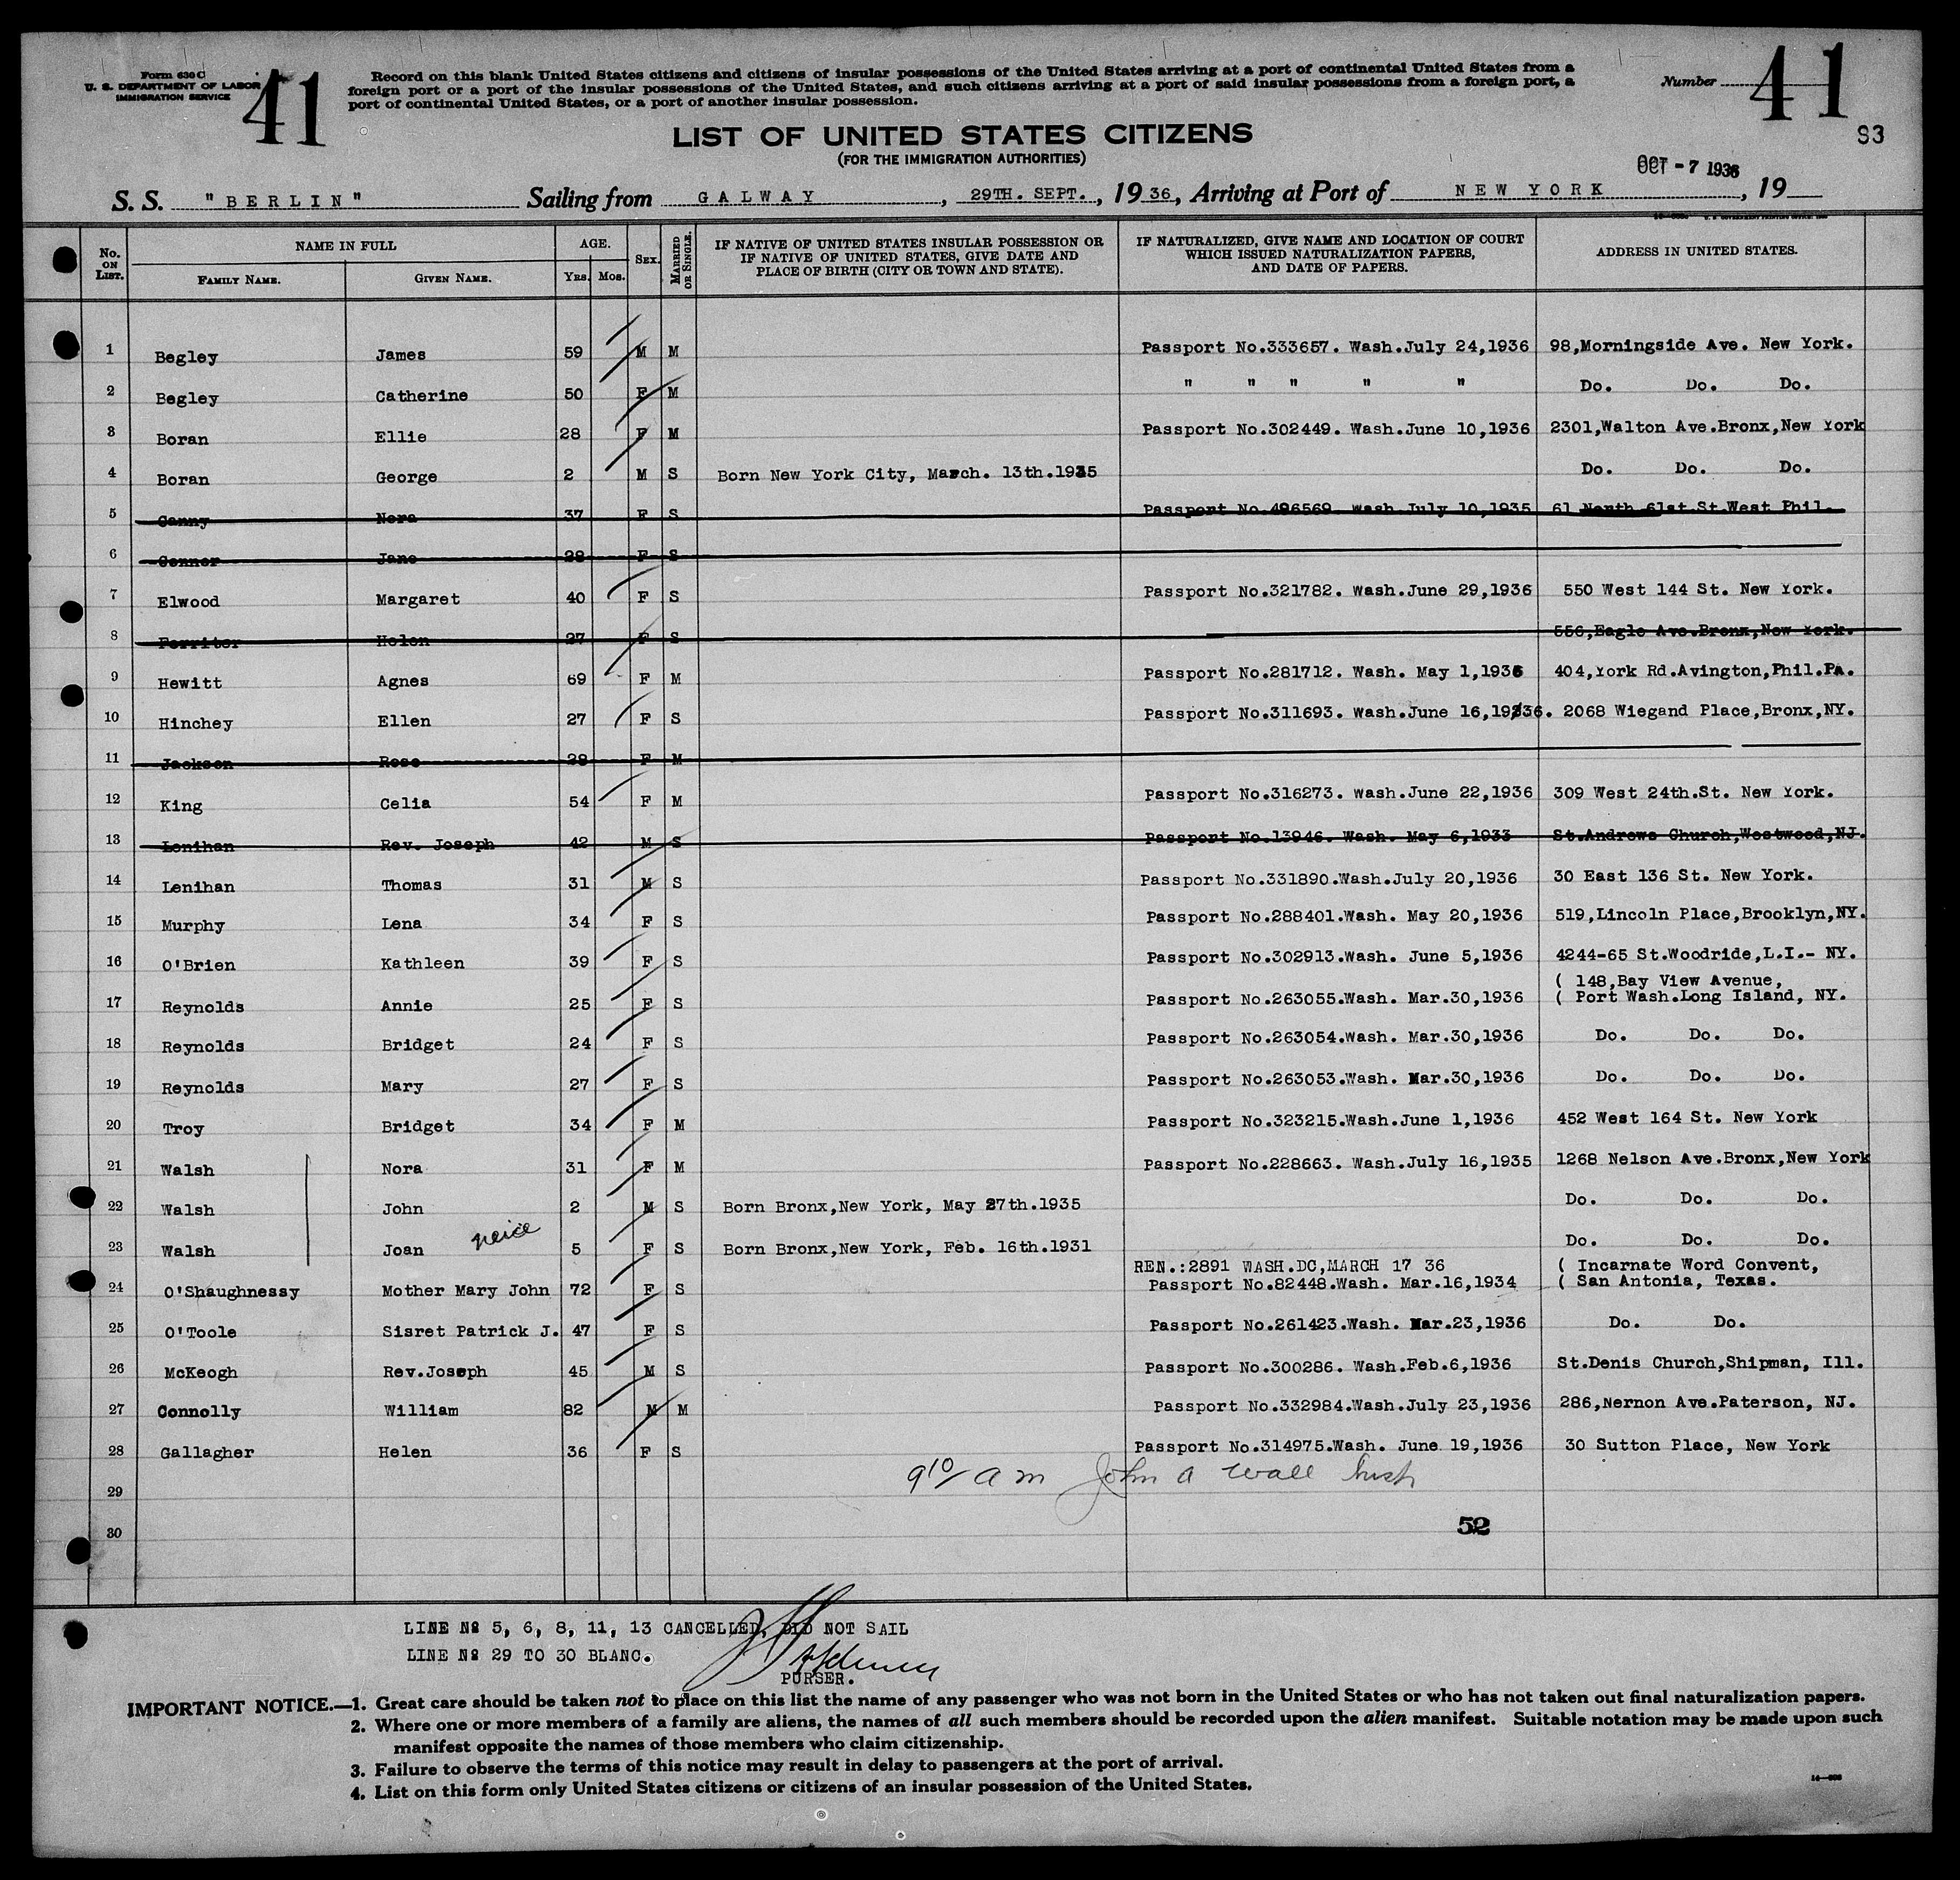 Form 630 C
U. S. DEPARTMENT OF LABOR
IMMIGRATION SERVICE
41
Record on this blank United States citizens and citizens of insular possessions of the United States arriving at a port of continental United States from a
foreign port or a port of the insular possessions of the United States, and such citizens arriving at a port of said insular possessions from a foreign port, a
port of continental United States, or a port of another insular possession.
Number 41
93
LIST OF UNITED STATES CITIZENS
(FOR THE IMMIGRATION AUTHORITIES)
OCT - 7 1936
S. S. "BERLIN" Sailing from GALWAY, 29TH. SEPT., 1936, Arriving at Port of NEW YORK, 19
No. ON LIST. NAME IN FULL FAMILY NAME. GIVEN NAME. AGE. YRS. MOS. SEX. MARRIED OR SINGLE. IF NATIVE OF UNITED STATES INSULAR POSSESSION OR IF NATIVE OF UNITED STATES, GIVE DATE AND PLACE OF BIRTH (CITY OR TOWN AND STATE). IF NATURALIZED, GIVE NAME AND LOCATION OF COURT WHICH ISSUED NATURALIZATION PAPERS, AND DATE OF PAPERS. ADDRESS IN UNITED STATES.
1 Begley James 59 M M Passport No.333657. Wash.July 24,1936 98,Morningside Ave. New York.
2 Begley Catherine 50 F M " " " " " Do. Do. Do.
3 Boran Ellie 28 F M Passport No.302449. Wash.June 10,1936 2301,Walton Ave.Bronx,New York
4 Boran George 2 M S Born New York City, March. 13th.1935 Do. Do. Do.
5 Canny Nora 37 F S Passport No.496569. Wash.July 10,1935 61 North 61st.St.West Phil.
6 Connor Jane 28 F S
7 Elwood Margaret 40 F S Passport No.321782. Wash.June 29,1936 550 West 144 St. New York.
8 Ferriter Helen 27 F S 556,Eagle Ave.Bronx,New York.
9 Hewitt Agnes 69 F M Passport No.281712. Wash. May 1,1936 404,York Rd.Avington,Phil.Pa.
10 Hinchey Ellen 27 F S Passport No.311693. Wash.June 16,19336. 2068 Wiegand Place,Bronx,NY.
11 Jackson Rose 28 F M
12 King Celia 54 F M Passport No.316273. Wash.June 22,1936 309 West 24th.St. New York.
13 Lenihan Rev. Joseph 42 M S Passport No.13946. Wash. May 6,1933 St.Andrews Church,Westwood,NJ.
14 Lenihan Thomas 31 M S Passport No.331890.Wash.July 20,1936 30 East 136 St. New York.
15 Murphy Lena 34 F S Passport No.288401.Wash. May 20,1936 519,Lincoln Place,Brooklyn,NY.
16 O'Brien Kathleen 39 F S Passport No.302913.Wash. June 5,1936 4244-65 St.Woodride,L.I.- NY.
( 148,Bay View Avenue,
17 Reynolds Annie 25 F S Passport No.263055.Wash. Mar.30,1936 ( Port Wash.Long Island, NY.
18 Reynolds Bridget 24 F S Passport No.263054.Wash. Mar.30,1936 Do. Do. Do.
19 Reynolds Mary 27 F S Passport No.263053.Wash. Mar.30,1936 Do. Do. Do.
20 Troy Bridget 34 F M Passport No.323215.Wash.June 1,1936 452 West 164 St. New York
21 Walsh Nora 31 F M Passport No.228663. Wash.July 16,1935 1268 Nelson Ave.Bronx,New York
22 Walsh John 2 M S Born Bronx,New York, May 27th.1935 Do. Do. Do.
23 Walsh Joan neice 5 F S Born Bronx,New York, Feb. 16th.1931 Do. Do. Do.
REN.:2891 WASH.DC,MARCH 17 36 ( Incarnate Word Convent,
24 O'Shaughnessy Mother Mary John 72 F S Passport No.82448.Wash. Mar.16,1934 ( San Antonia, Texas.
25 O'Toole Sisret Patrick J. 47 F S Passport No.261423.Wash. Mar.23,1936 Do. Do.
26 McKeogh Rev.Joseph 45 M S Passport No.300286. Wash.Feb.6,1936 St.Denis Church,Shipman, Ill.
27 Connolly William 82 M M Passport No.332984.Wash.July 23,1936 286,Nernon Ave.Paterson, NJ.
28 Gallagher Helen 36 F S Passport No.314975.Wash. June 19,1936 30 Sutton Place, New York
9 10/ am John A Wall Insp
29
30
52
LINE Nº 5, 6, 8, 11, 13 CANCELLED, DID NOT SAIL
LINE Nº 29 TO 30 BLANC.
PURSER.
IMPORTANT NOTICE.—1. Great care should be taken not to place on this list the name of any passenger who was not born in the United States or who has not taken out final naturalization papers.
2. Where one or more members of a family are aliens, the names of all such members should be recorded upon the alien manifest. Suitable notation may be made upon such
manifest opposite the names of those members who claim citizenship.
3. Failure to observe the terms of this notice may result in delay to passengers at the port of arrival.
4. List on this form only United States citizens or citizens of an insular possession of the United States.